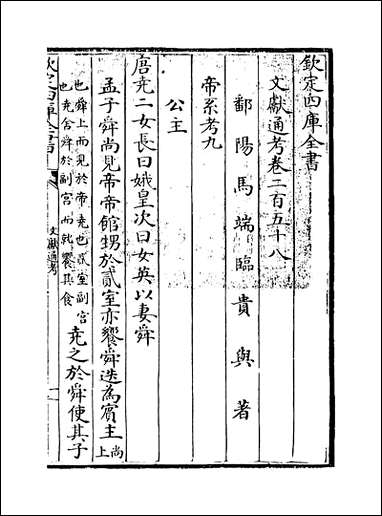 欽定四庫全書
文獻通考卷二百五十八
鄱陽馬端臨貴與著
帝系考九
公主
唐堯二女長曰娥皇次曰女英以妻舜
孟子舜尚見帝帝館甥於貳室亦饗舜迭為賓主尚
上
也舜上而見於帝堯也貳室副宮
也堯舍舜於副宮而就饗其食
堯之於舜使其子
欽定四庫全書
文獻通考
一